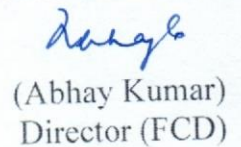 (Abhay Kumar)
Director (FCD)